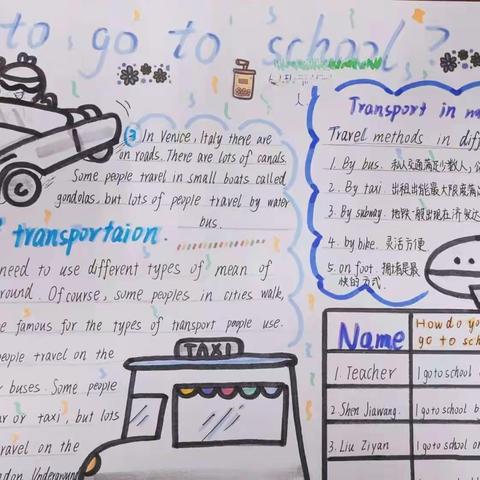 to go to school?
② In Venice, Italy there are
on roads. There are lots of canals.
Some people travel in small boats called
gondolas, but lots of people travel by water
bus.
transportaion.
need to use different types of mean of
round. Of course, some peoples in cities walk,
e famous for the types of transport people use.
eople travel on the
r buses. Some people
ar or taxi, but lots
ravel on the
ndon Underground
TAXI
Transport in
Travel methods in diff
1. By bus. 私人交通满足少数人,
2. By taxi. 出租出能最大限度满
3. By subway. 地铁一般出现在济发达
4. by bike. 灵活方便
5. on foot. 拥堵是最
快的方式.
Name
How do yo
go to scho
1. Teacher
I go to school
2. Shen Jiawang.
I go to school b
3. Liu Ziyan
I go to school on